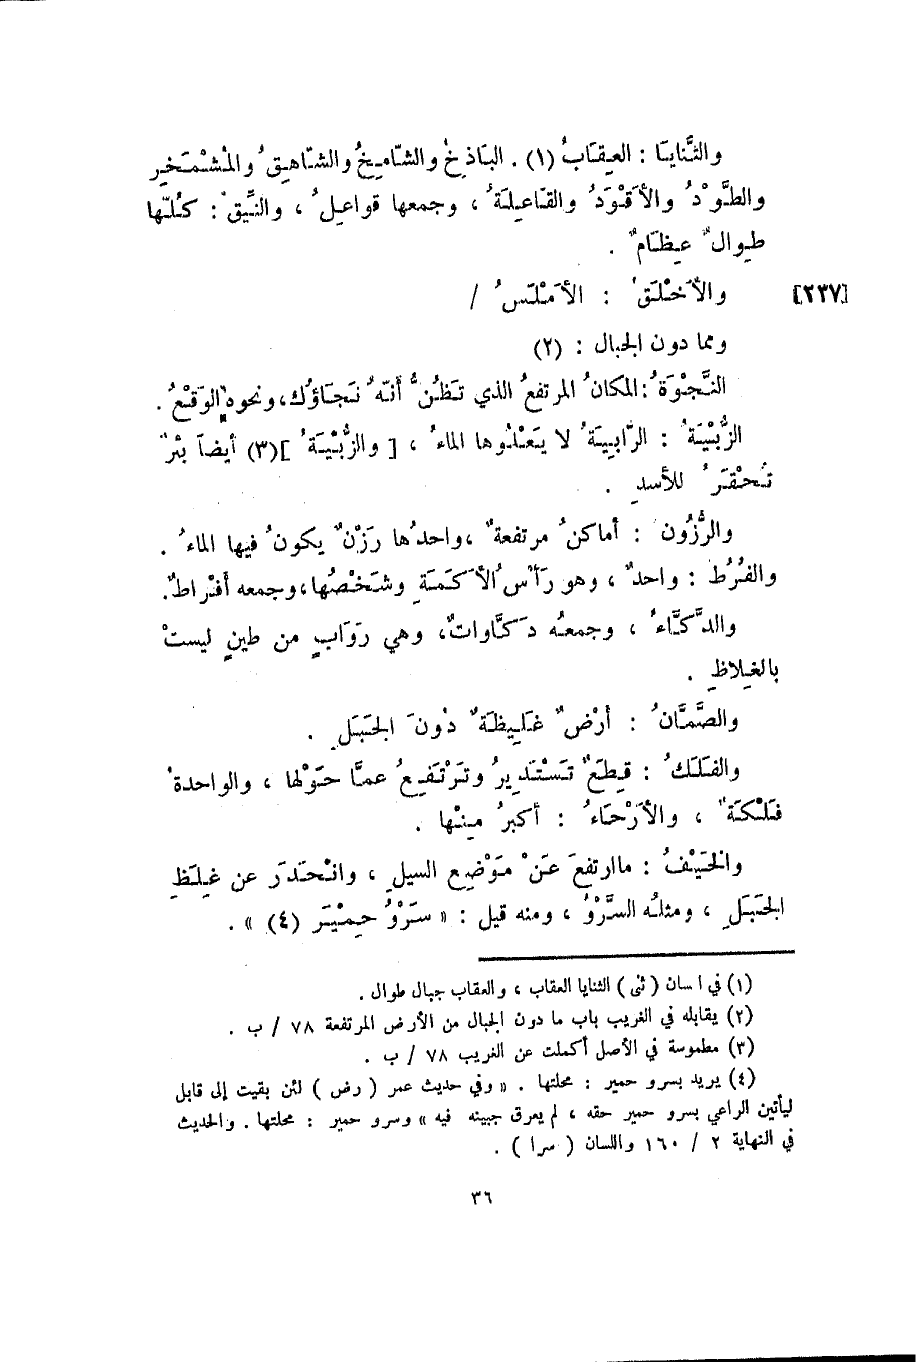 والثَّنايَا : العِقَابُ (١) . البَاذِخُ والشّامِخُ والشّاهِقُ والمُشْمَخِر
والطَّوْدُ والأَقْوَدُ والقَاعِلَةُ ، وجمعها قواعِلُ ، والنِّيقُ : كُلّها
طِوالٌ عِظَامٌ .
[٢٣٧] والأَخْلَقُ : الأَمْلَسُ /
ومما دون الجبال : (٢)
النَّجْوَةُ : المكانُ المرتفعُ الذي تَظُنُّ أنّهُ نَجَاؤُكَ ، ونحوه الوَقْعُ .
الزُّبْيَةُ : الرَّابِيَةُ لا يَعْلُوها الماءُ ، [ والزُّبْيَةُ ] (٣) أيضاً بِئْرٌ
تُحْفَرُ للأسدِ .
والرُّزُون : أماكنُ مرتفعةٌ ، واحدُها رَزْنٌ يكونُ فيها الماءُ .
والفُرُطُ : واحدٌ ، وهو رَأْسُ الأَكَمَةِ وشَخْصُها ، وجمعه أَفْراطٌ .
والدَّكَّاءُ ، وجمعُه دَكَّاواتٌ ، وهي رَوَابٍ من طينٍ ليستْ
بالغِلاظِ .
والصَّمَّانُ : أرْضٌ غَلِيظَةٌ دُونَ الجَبَلِ .
والفَلَكُ : قِطَعٌ تَسْتَدِيرُ وتَرْتَفِعُ عمَّا حَوْلها ، والواحدةُ
فَلْكَةٌ ، والأَرْحَاءُ : أكبرُ مِنْها .
والخَيْفُ : ماارتفعَ عَنْ مَوْضِعِ السيلِ ، وانْحَدَرَ عن غِلَظِ
الجَبَلِ ، ومثلُه السَّرْوُ ، ومنه قيل : « سَرْوُ حِمْيَر (٤) » .
(١) في اسان ( ثنى ) الثنايا العقاب ، والعقاب جبال طوال .
(٢) يقابله في الغريب باب ما دون الجبال من الأرض المرتفعة ٧٨ / ب .
(٣) مطموسة في الأصل أكملت عن الغريب ٧٨ / ب .
(٤) يريد بسرو حمير : محلتها . « وفي حديث عمر ( رض ) لئن بقيت إلى قابل
ليأتين الراعي بسرو حمير حقه ، لم يعرق جبينه فيه » وسرو حمير : محلتها . والحديث
في النهاية ٢ / ١٦٠ واللسان ( سرا ) .
٣٦